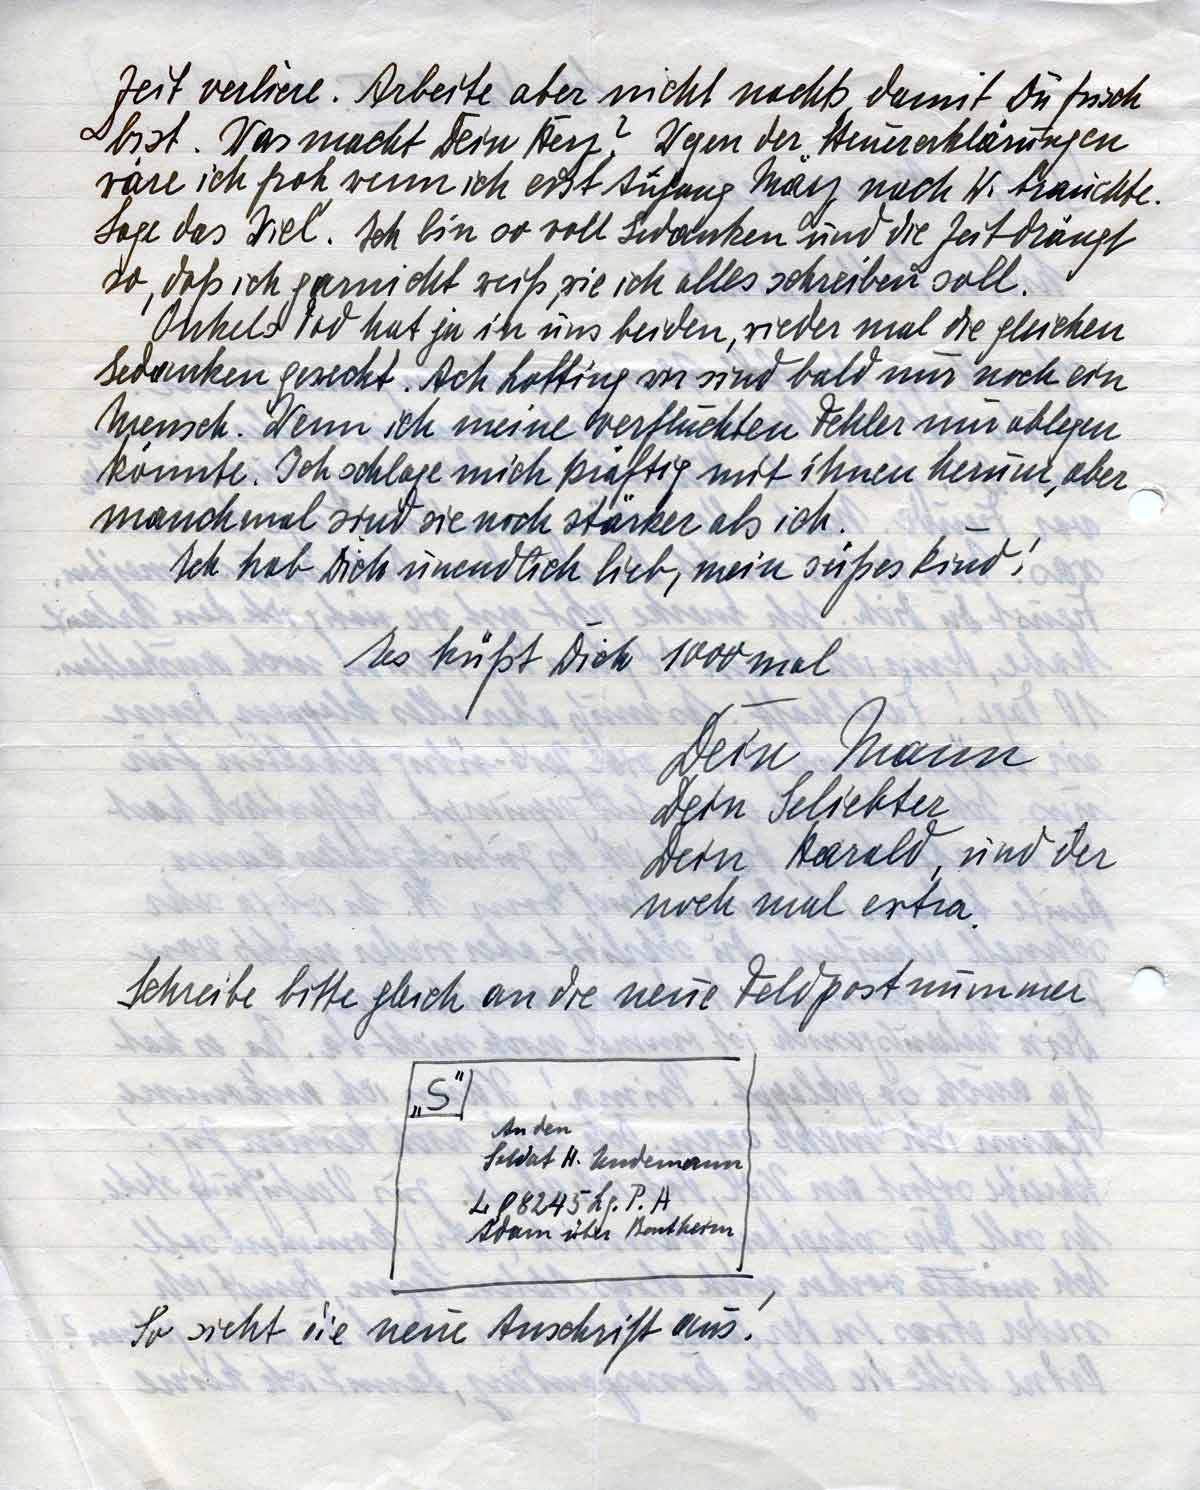 Zeit verliere. Arbeite aber nicht nachts, damit Du frisch
bist. Was macht Dein Herz? Wegen der Steuererklärungen
wäre ich froh, wenn ich erst Anfang März nach W. brauchte.
Sage das Viel. Ich bin so voll Gedanken und die Zeit drängt
so, daß ich garnicht weiß, wie ich alles schreiben soll.
Onkels Tod hat ja in uns beiden, wieder mal die gleichen
Gedanken geweckt. Ach wir sind bald nur noch ein
Mensch. Wenn ich meine verfluchten Fehler nur ablegen
könnte. Ich schlage mich kräftig mit ihnen herum, aber
manchmal sind sie noch stärker als ich.
Ich hab Dich unendlich lieb, mein süßes Kind!
Es küßt Dich 1000 mal
Dein Mann
Dein Geliebter
Dein Harald, und der
noch mal extra.
Schreibe bitte gleich an die neue Feldpostnummer
„S"
An den
Soldat H.
L 08245 Lg. P. A
über Bentheim
So sieht die neue Anschrift aus!